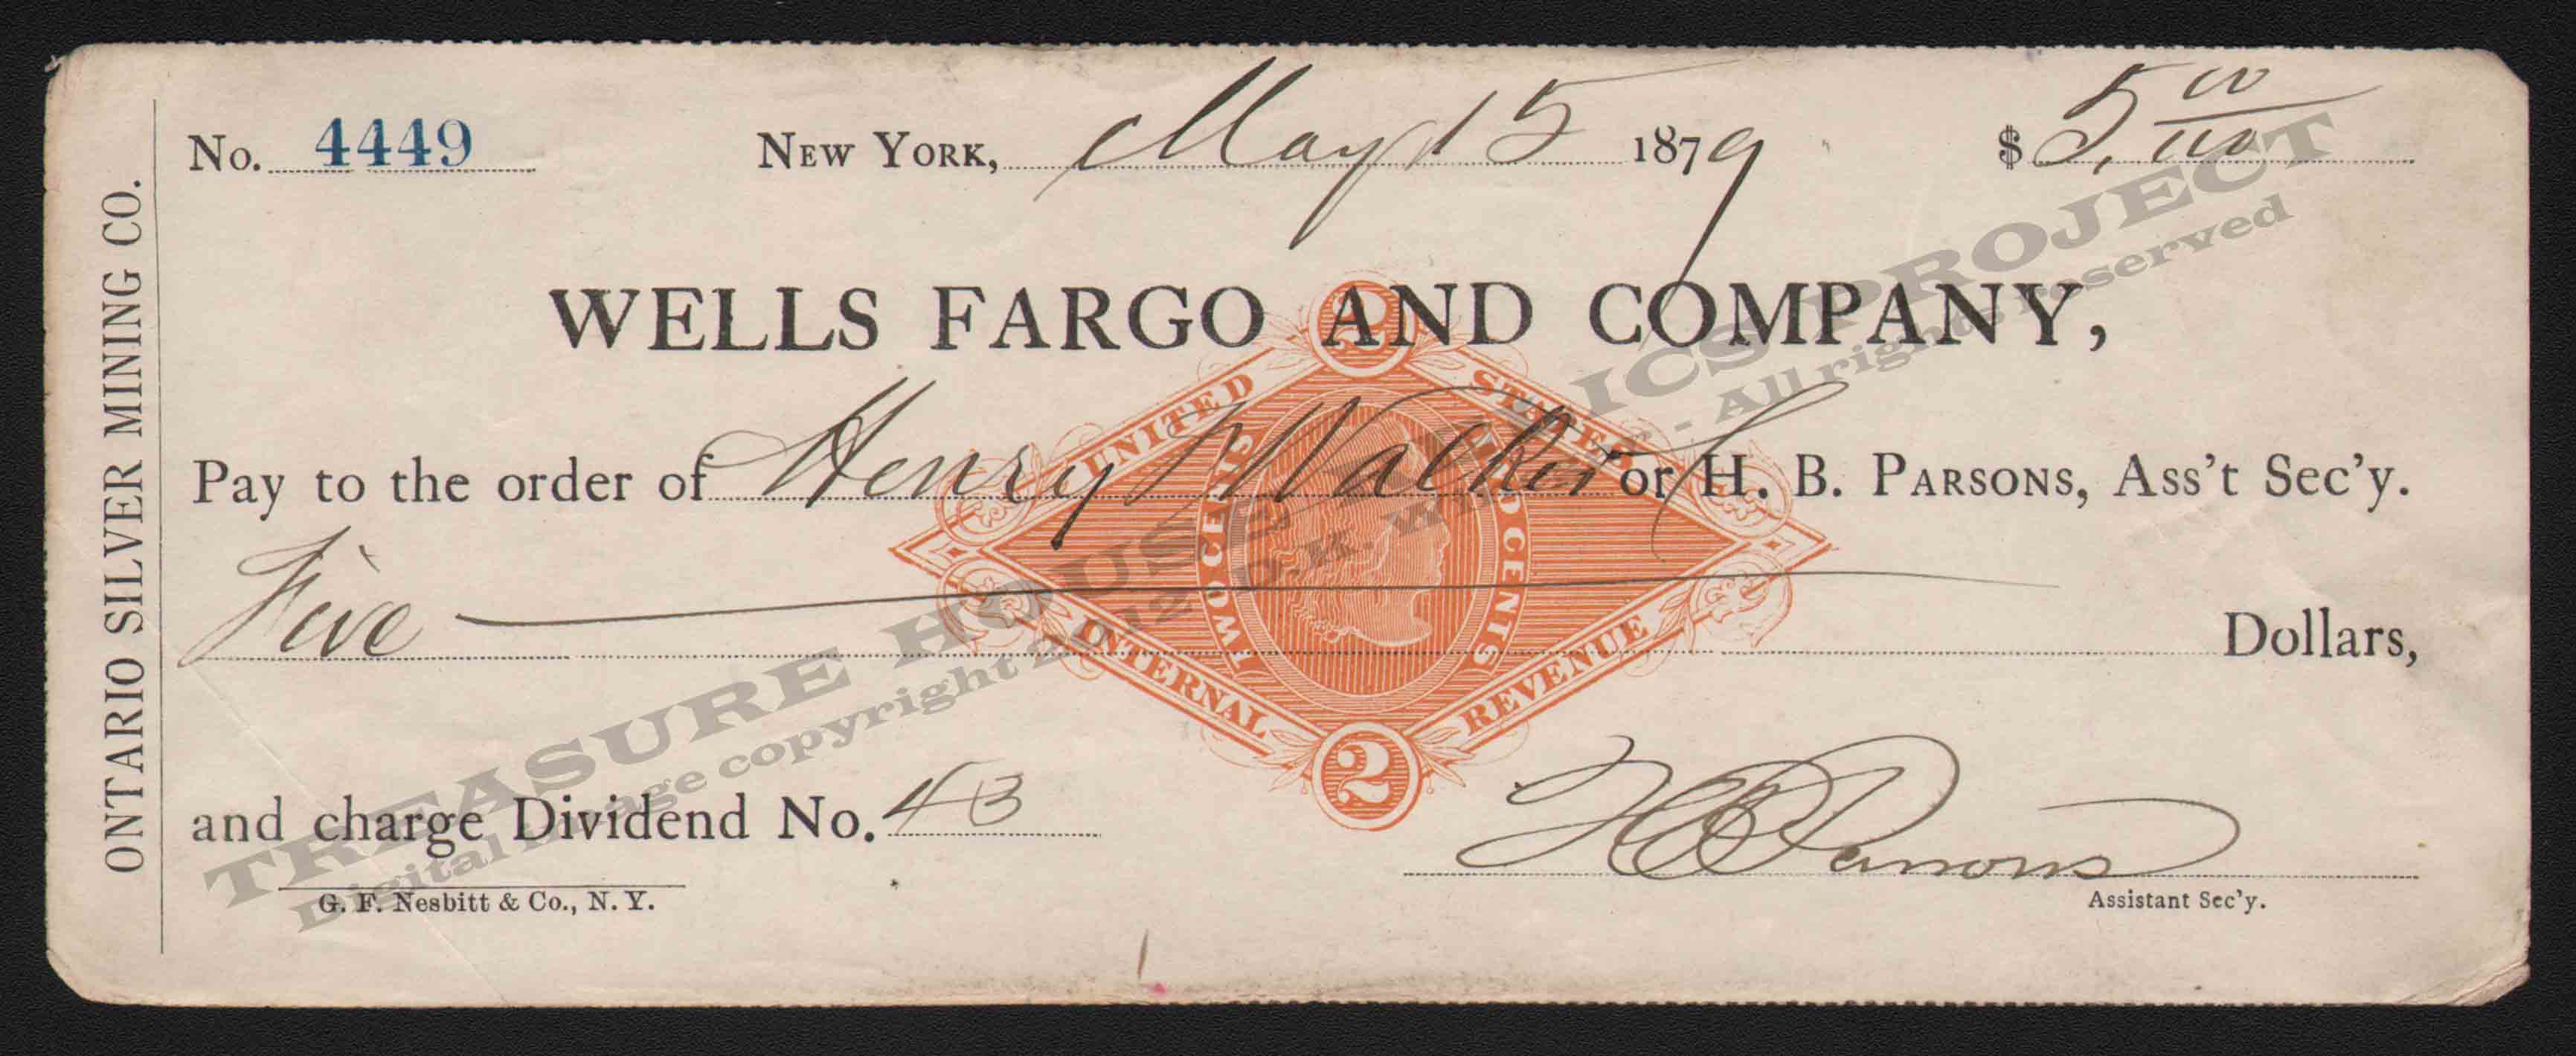 ONTARIO SILVER MINING CO.
No. 4449 NEW YORK, May 15 1879 $5, 00/100
WELLS FARGO AND COMPANY,
Pay to the order of Henry Walker or H. B. PARSONS, Ass't Sec'y.
Five Dollars,
and charge Dividend No. 43
H B Parsons
Assistant Sec'y.
G. F. Nesbitt & Co., N. Y.
2
UNITED STATES
TWO CENTS TWO CENTS
INTERNAL REVENUE
2
TREASURE HOUSE ICS PROJECT
Digital image copyright 2012 D.K. - All rights reserved